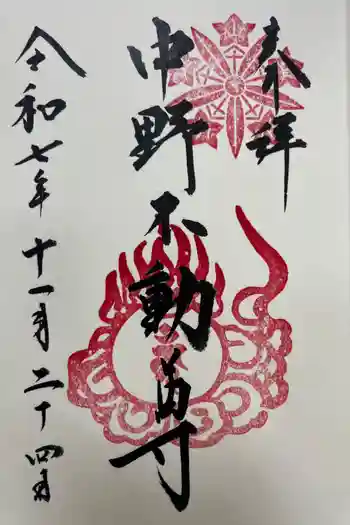 奉拝
中野不動尊
令和七年十一月二十四日